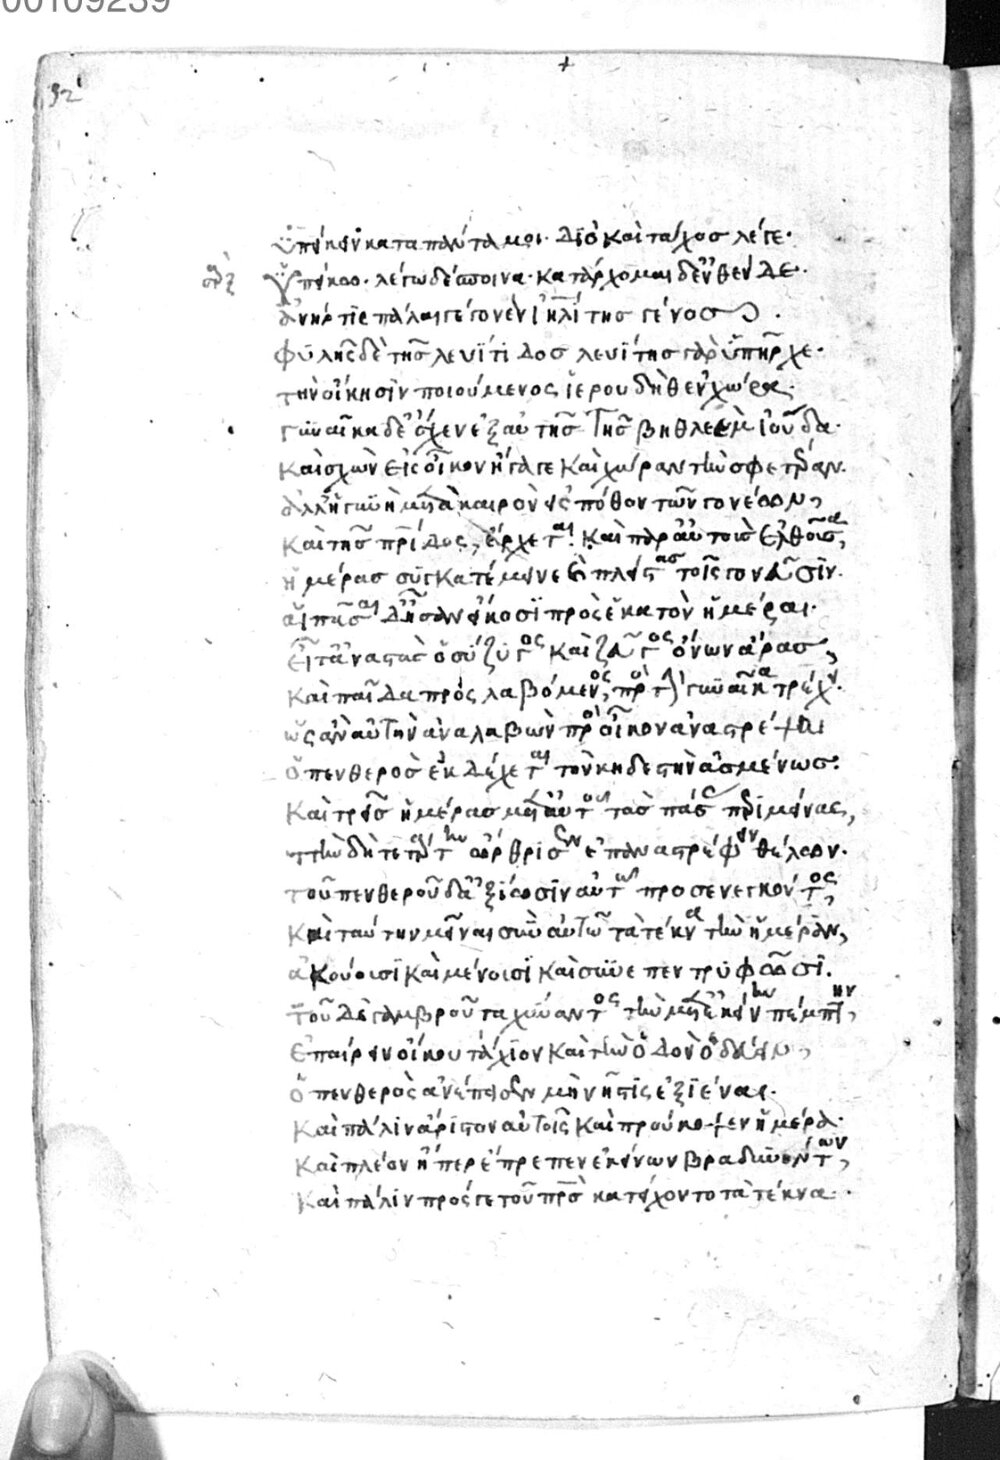 00109239
92
ὑπεῖκον κατα πάντα μοι· διὸ καὶ τάχος λέγε·
ὑπείκω· λέγω δέσποινα· κατάρχομαι δ' ἔνθένδε·
ἀνήρ τις πάλαι γέγονεν ἰηλίτης γένος
φυλῆς δὲ τῆς λευΐτιδος λευΐτης γὰρ ὑπῆρχε·
τὴν οἴκησιν ποιούμενος ἱερου δῆθεν χώρας·
γυναῖκα δ' ἔσχεν ἐξ αὐτῆς τῆς βηθλεὲμ ἰούδα·
καὶ σχὼν εἰς οἶκον ἤγαγε καὶ χώραν τὴν σφετέραν·
ἀλλ' ἡ γυνὴ μετὰ καιρὸν εἰς πόθον τῶν γονέων,
καὶ τῆς πρίδος ἔρχεται· καὶ παρ' αὐτοῖς ἐλθοῦσα,
ἡμέρας συγκατέμεινε πλείστας τοῖς γονεῦσιν·
αἱ πᾶσαι δ' ἦσαν εἴκοσι πρὸς ἑκατὸν ἡμέραι·
εἶτ' ἀναστὰς ὁ σύζυγος καὶ ζεῦγος ὄνων ἄρας,
καὶ παῖδα προσλαβόμενος, πρὸς τὴν γυναῖκα τρέχει·
ὡς ἂν αὐτὴν ἀναλαβὼν πρὸς οἶκον ἀναστρέψαι
ὁ πενθερὸς ἐκδέχεται τὸν κηδεστὴν ἀσμένως·
καὶ τρεῖς ἡμέρας μετ' αὐτοῦ τὰς πάσας περιμείνας,
τὴν δὴ τετάρτην ὤρθρισεν ἐπαναστρέφειν θέλων·
τοῦ πενθεροῦ δ' ἀξίωσιν αὐτῶ προσενεγκόντος,
καὶ ταύτην μεῖναι σὺν αὐτῶ τὰ τέκνα τὴν ἡμέραν,
ἀκούουσι καὶ μένουσι καὶ συνεπεντρυφῶσι.
τοῦ δὲ γαμβροῦ ταχύναντος τὴν μετ' ἐκείνην πέμπτην,
ἐπαίρειν οἴκου τάχιον καὶ τὴν ὁδὸν ὁδεύειν,
ὁ πενθερὸς ἀνέπεισεν μὴ νῆστις ἐξιέναι·
καὶ πάλιν ἄριστον αὐτοῖς καὶ προύκοψεν ἡμέρα·
καὶ πλέον ἤπερ ἔπρεπεν ἐκείνων βραδυνόντων,
καὶ πάλιν πρός γε τοῦ πρς κατείχοντο τὰ τέκνα·